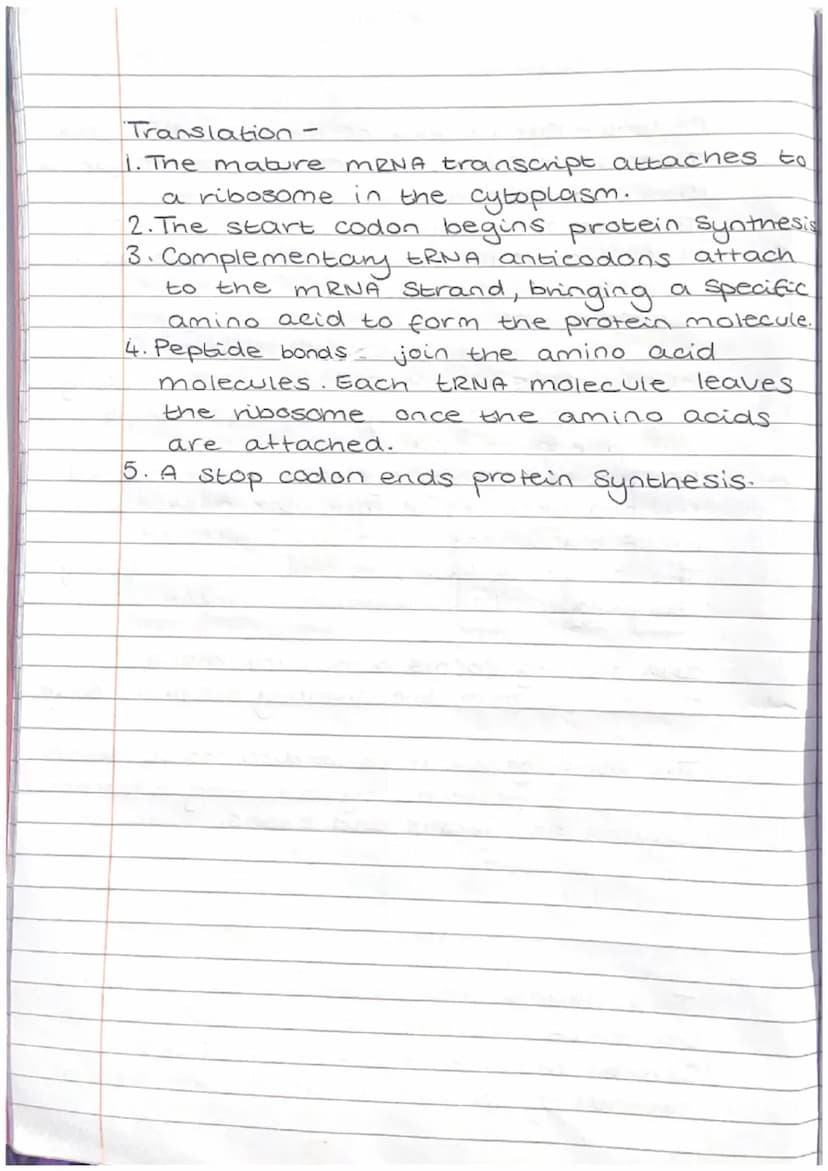 Translation -
1. The mature mRNA transcript attaches to
a ribosome in the cytoplasm.
2. The start codon begins protein synthesis
3. Complementary tRNA anticodons attach
to the mRNA strand, bringing a specific
amino acid to form the protein molecule.
4. Peptide bonds join the amino acid
molecules. Each tRNA molecule leaves
the ribosome once the amino acids
are attached.
5. A stop codon ends protein synthesis.